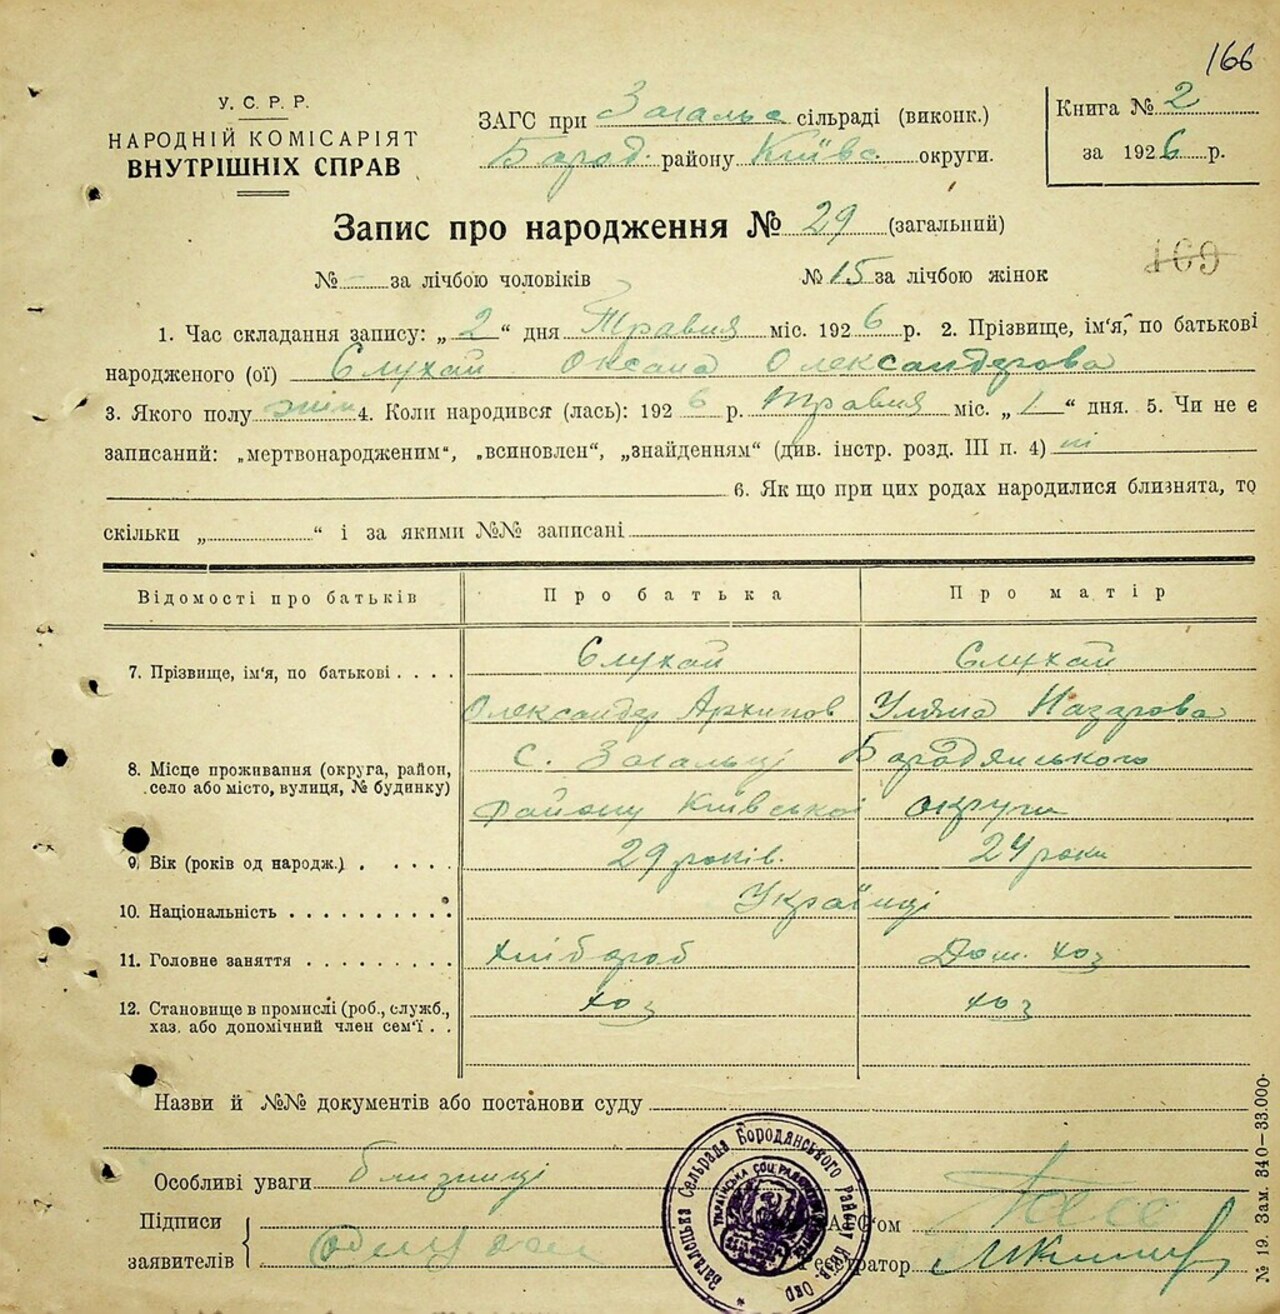 166
У. С. Р. Р.
НАРОДНІЙ КОМІСАРІЯТ
ВНУТРІШНІХ СПРАВ
ЗАГС при Загальс сільраді (виконк.)
Бород. району Київс. округи.
Книга № 2
за 1926 р.
Запис про народження № 29 (загальний)
169
№ – за лічбою чоловіків № 15 за лічбою жінок
1. Час складання запису: „ 2 “ дня Травня міс. 1926 р. 2. Прізвище, ім'я, по батькові
народженого (ої) Слухай Оксана Олександрова
3. Якого полу жін 4. Коли народився (лась): 1926 р. Травня міс. „ 1 “ дня. 5. Чи не є
записаний: „мертвонародженим“, „всиновлен“, „знайденням“ (див. інстр. розд. III п. 4) ні
6. Як що при цих родах народилися близнята, то
скільки „ “ і за якими №№ записані
Відомості про батьків Про батька Про матір
7. Прізвище, ім'я, по батькові . . . . Слухай Слухай
Олександр Архипов Уляна Назарова
8. Місце проживання (округа, район, с. Загальці Бородянського
село або місто, вулиця, № будинку) району Київської округи
9. Вік (років од народж.) . . . . . 29 років. 24 роки
10. Національність . . . . . . . . . . Українці
11. Головне заняття . . . . . . . . . Хлібороб Дом. хоз
12. Становище в промислі (роб., служб., хоз хоз
хаз. або допомічний член сем'ї . .
Назви й №№ документів або постанови суду
Особливі уваги близниці
Підписи
заявителів
АГС'ом
Реєстратор
Загалецька Сельрада Бородянського Район Київ. Окр
№ 19. Зам. 340—33.000.